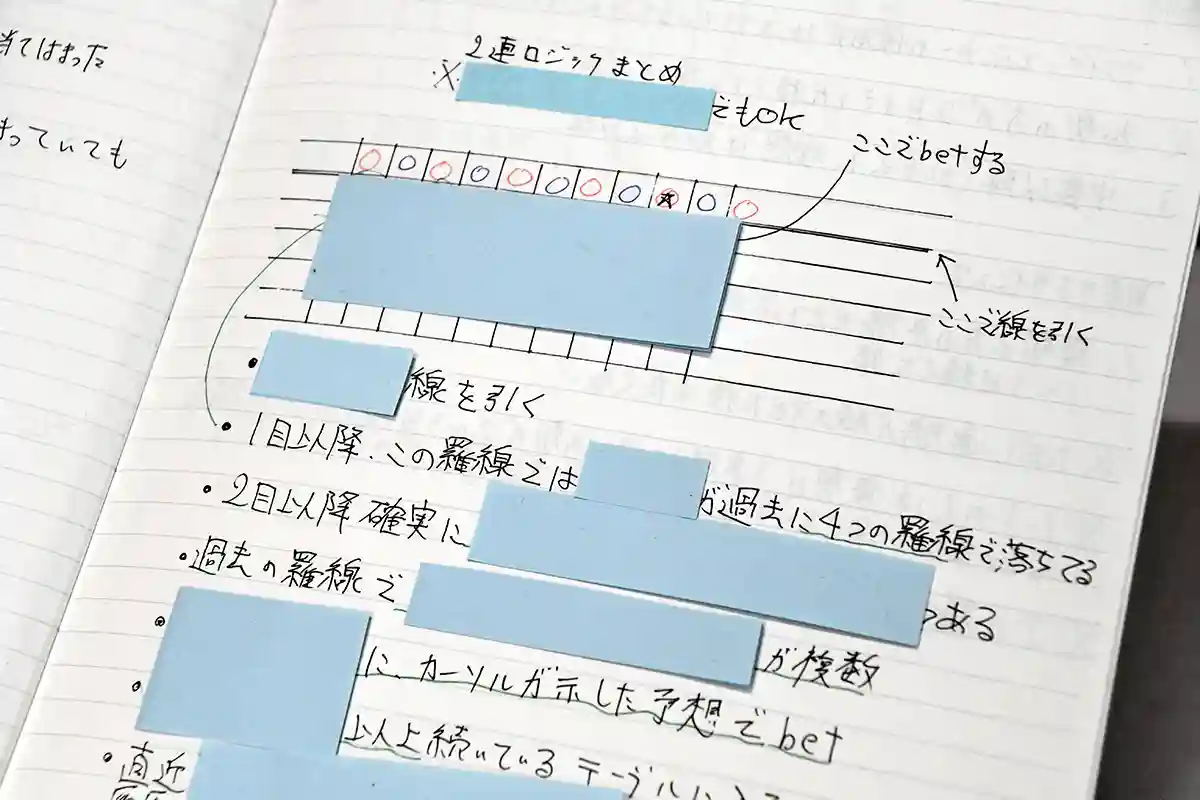 当てはまった
まっていても
2連ロジックまとめ
※
でもOK
ここでbetする
ここで線を引く
・線を引く
・1目以降、この羅線では
が過去に4つの羅線で落ちてる
・2目以降確実に
つある
・過去の羅線で
が複数
・に、カーソルが示した予想でbet
・以上続いているテーブルに
・直近